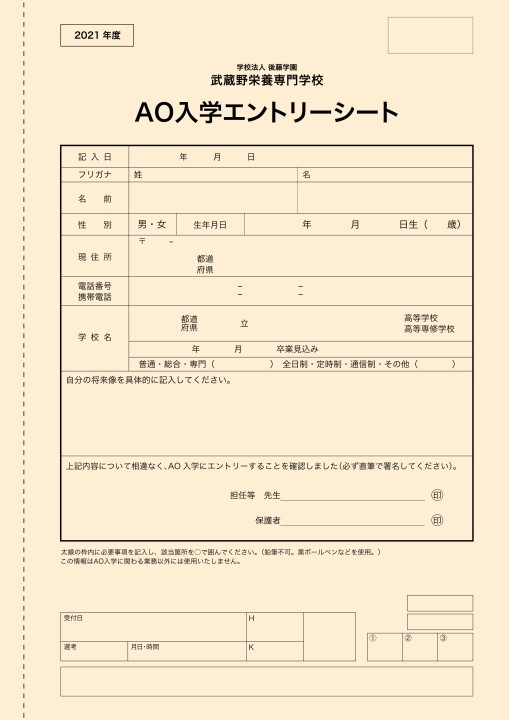 2021 年度
学校法人 後藤学園
武蔵野栄養専門学校
AO入学エントリーシート
記 入 日　年　月　日
フリガナ　姓　名
名　前
性　別　男・女　生年月日　年　月　日生（　歳）
現 住 所　〒　－
都道
府県
電話番号　－　－
携帯電話　－　－
学 校 名　都道府県　立　高等学校
高等専修学校
年　月　卒業見込み
普通・総合・専門（　）　全日制・定時制・通信制・その他（　）
自分の将来像を具体的に記入してください。
上記内容について相違なく、AO 入学にエントリーすることを確認しました（必ず直筆で署名してください）。
担任等　先生　㊞
保護者　㊞
太線の枠内に必要事項を記入し、該当箇所を○で囲んでください。（鉛筆不可。黒ボールペンなどを使用。）
この情報はAO入学に関わる業務以外には使用いたしません。
受付日　H
① ② ③
選考　月日・時間　K